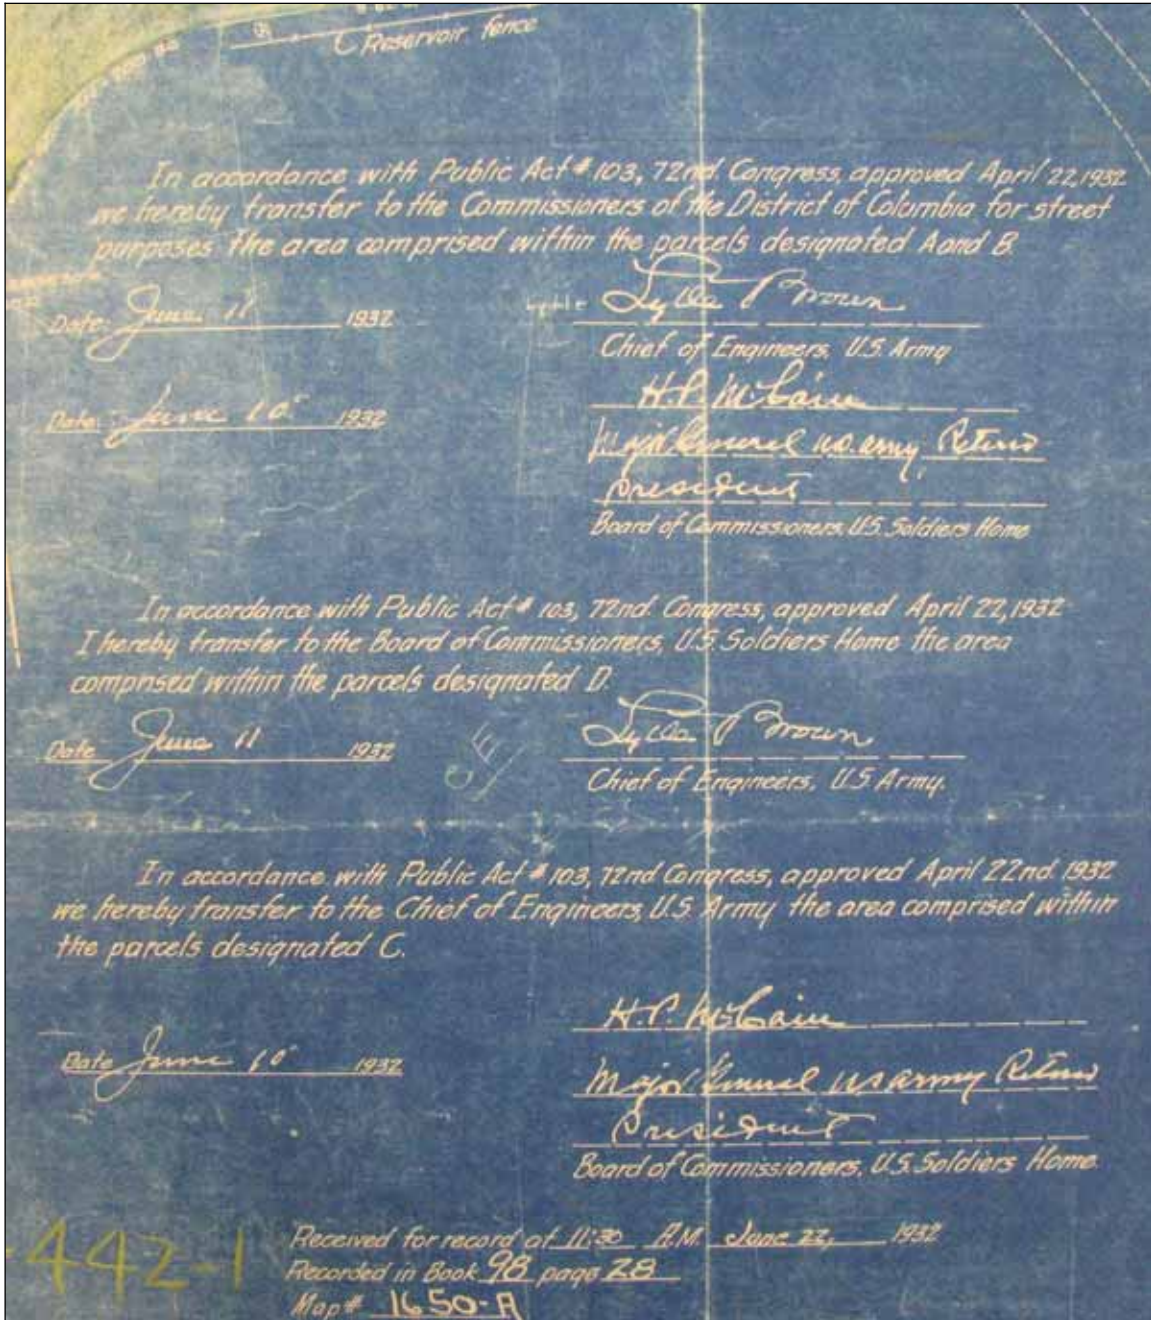 Reservoir fence
In accordance with Public Act # 103, 72nd Congress, approved April 22, 1932
we hereby transfer to the Commissioners of the District of Columbia for street
purposes the area comprised within the parcels designated A and B.
Date: June 11 1932
Lytle Brown
Chief of Engineers, U.S. Army
Date: June 10" 1932
H.P. McCain
Major General us. army, Retired
President
Board of Commissioners, U.S. Soldiers Home
In accordance with Public Act # 103, 72nd. Congress, approved April 22, 1932
I hereby transfer to the Board of Commissioners, U.S. Soldiers Home the area
comprised within the parcels designated D.
Date June 11 1932
Lytle Brown
Chief of Engineers, U.S. Army.
In accordance with Public Act # 103, 72nd Congress, approved April 22nd. 1932
we hereby transfer to the Chief of Engineers, U.S. Army the area comprised within
the parcels designated C.
H.P. McCain
Date June 10" 1932
Major General us army Retired
President
Board of Commissioners, U.S. Soldiers Home.
-442-1
Received for record at 11:30 A.M. June 22, 1932
Recorded in Book 98 page 28
Map # 1650-A